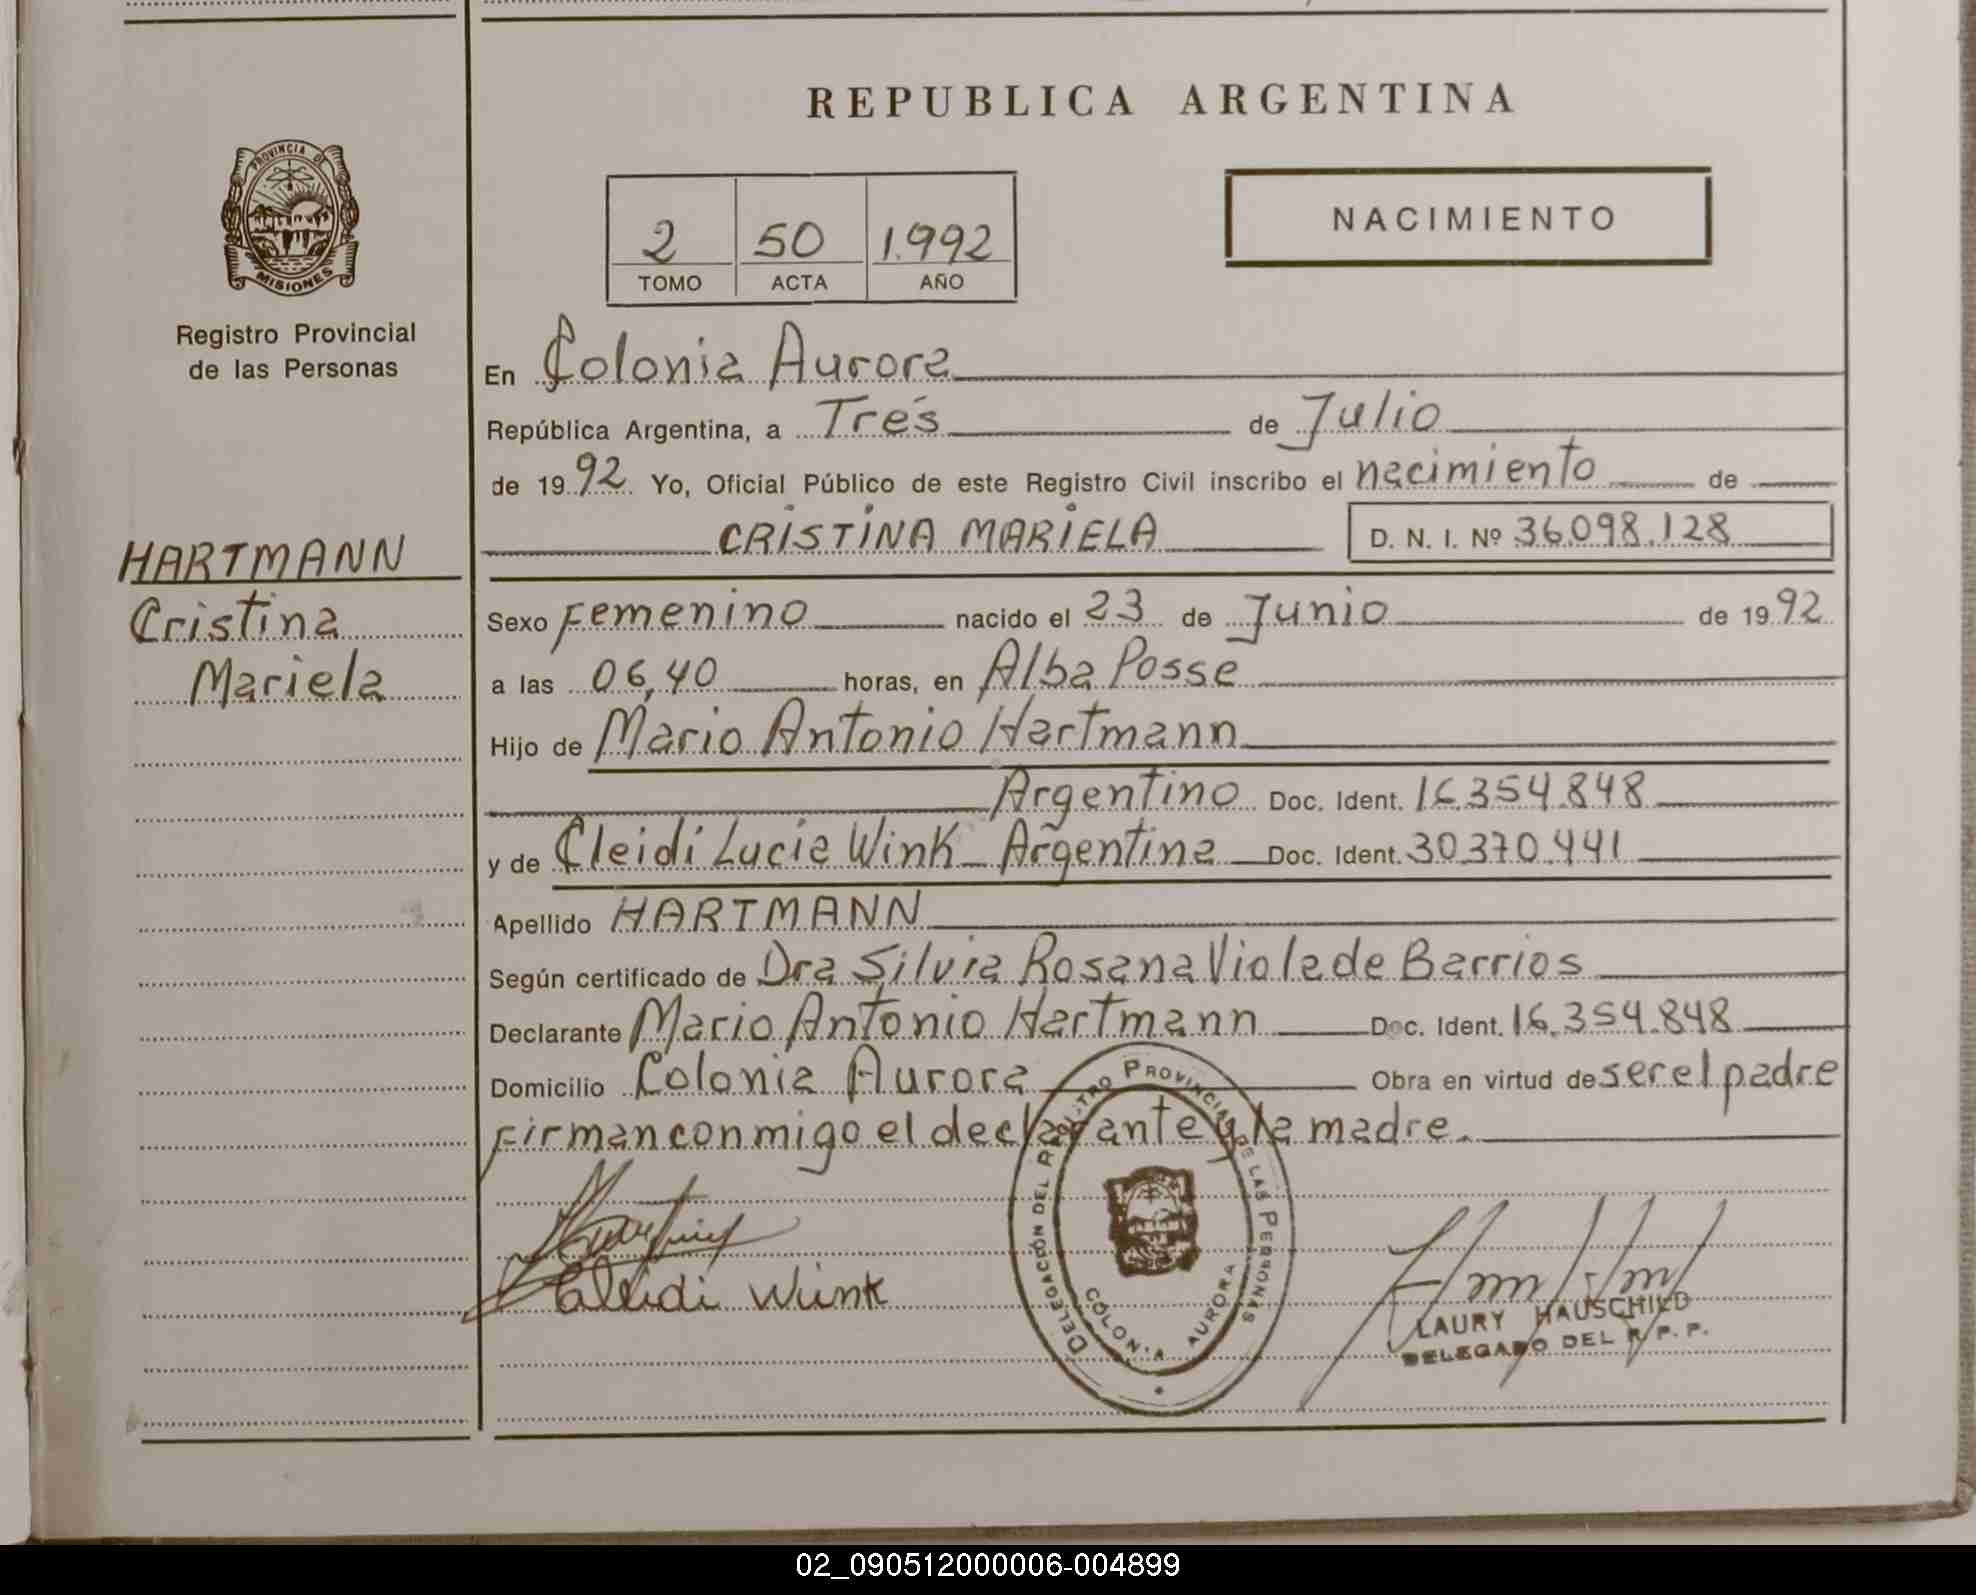 REPUBLICA ARGENTINA
PROVINCIA DE
MISIONES
Registro Provincial
de las Personas
2 50 1.992
TOMO ACTA AÑO
NACIMIENTO
En Colonia Aurora
República Argentina, a Trés de Julio
de 1992 Yo, Oficial Público de este Registro Civil inscribo el nacimiento de
CRISTINA MARIELA D. N. I. Nº 36.098.128
HARTMANN
Cristina
Mariela
Sexo Femenino nacido el 23 de Junio de 1992
a las 06,40 horas, en Alba Posse
Hijo de Mario Antonio Hartmann
Argentino Doc. Ident. 16.354.848
y de Cleidi Lucia Wink Argentina Doc. Ident. 30.370.441
Apellido HARTMANN
Según certificado de Dra Silvia Rosana Viola de Barrios
Declarante Mario Antonio Hartmann Doc. Ident. 16.354.848
Domicilio Colonia Aurora Obra en virtud de ser el padre
Firman conmigo el declarante y la madre.
DELEGACIÓN DEL REGISTRO PROVINCIAL DE LAS PERSONAS
COLONIA AURORA
Cleidi Wink
LAURY HAUSCHILD
DELEGADO DEL R. P. P.
02_090512000006-004899